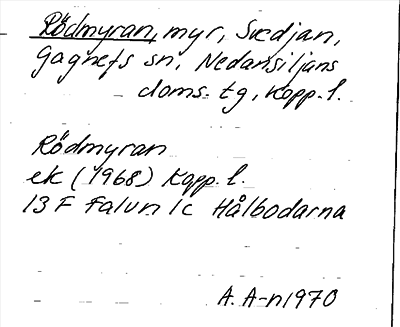 Rödmyran, myr, Svedjan,
Gagnefs sn, Nedansiljans
doms. tg, Kopp. l.
Rödmyran
ek (1968) Kopp. l.
13 F Falun 1c Hålbodarna
A. A-n 1970